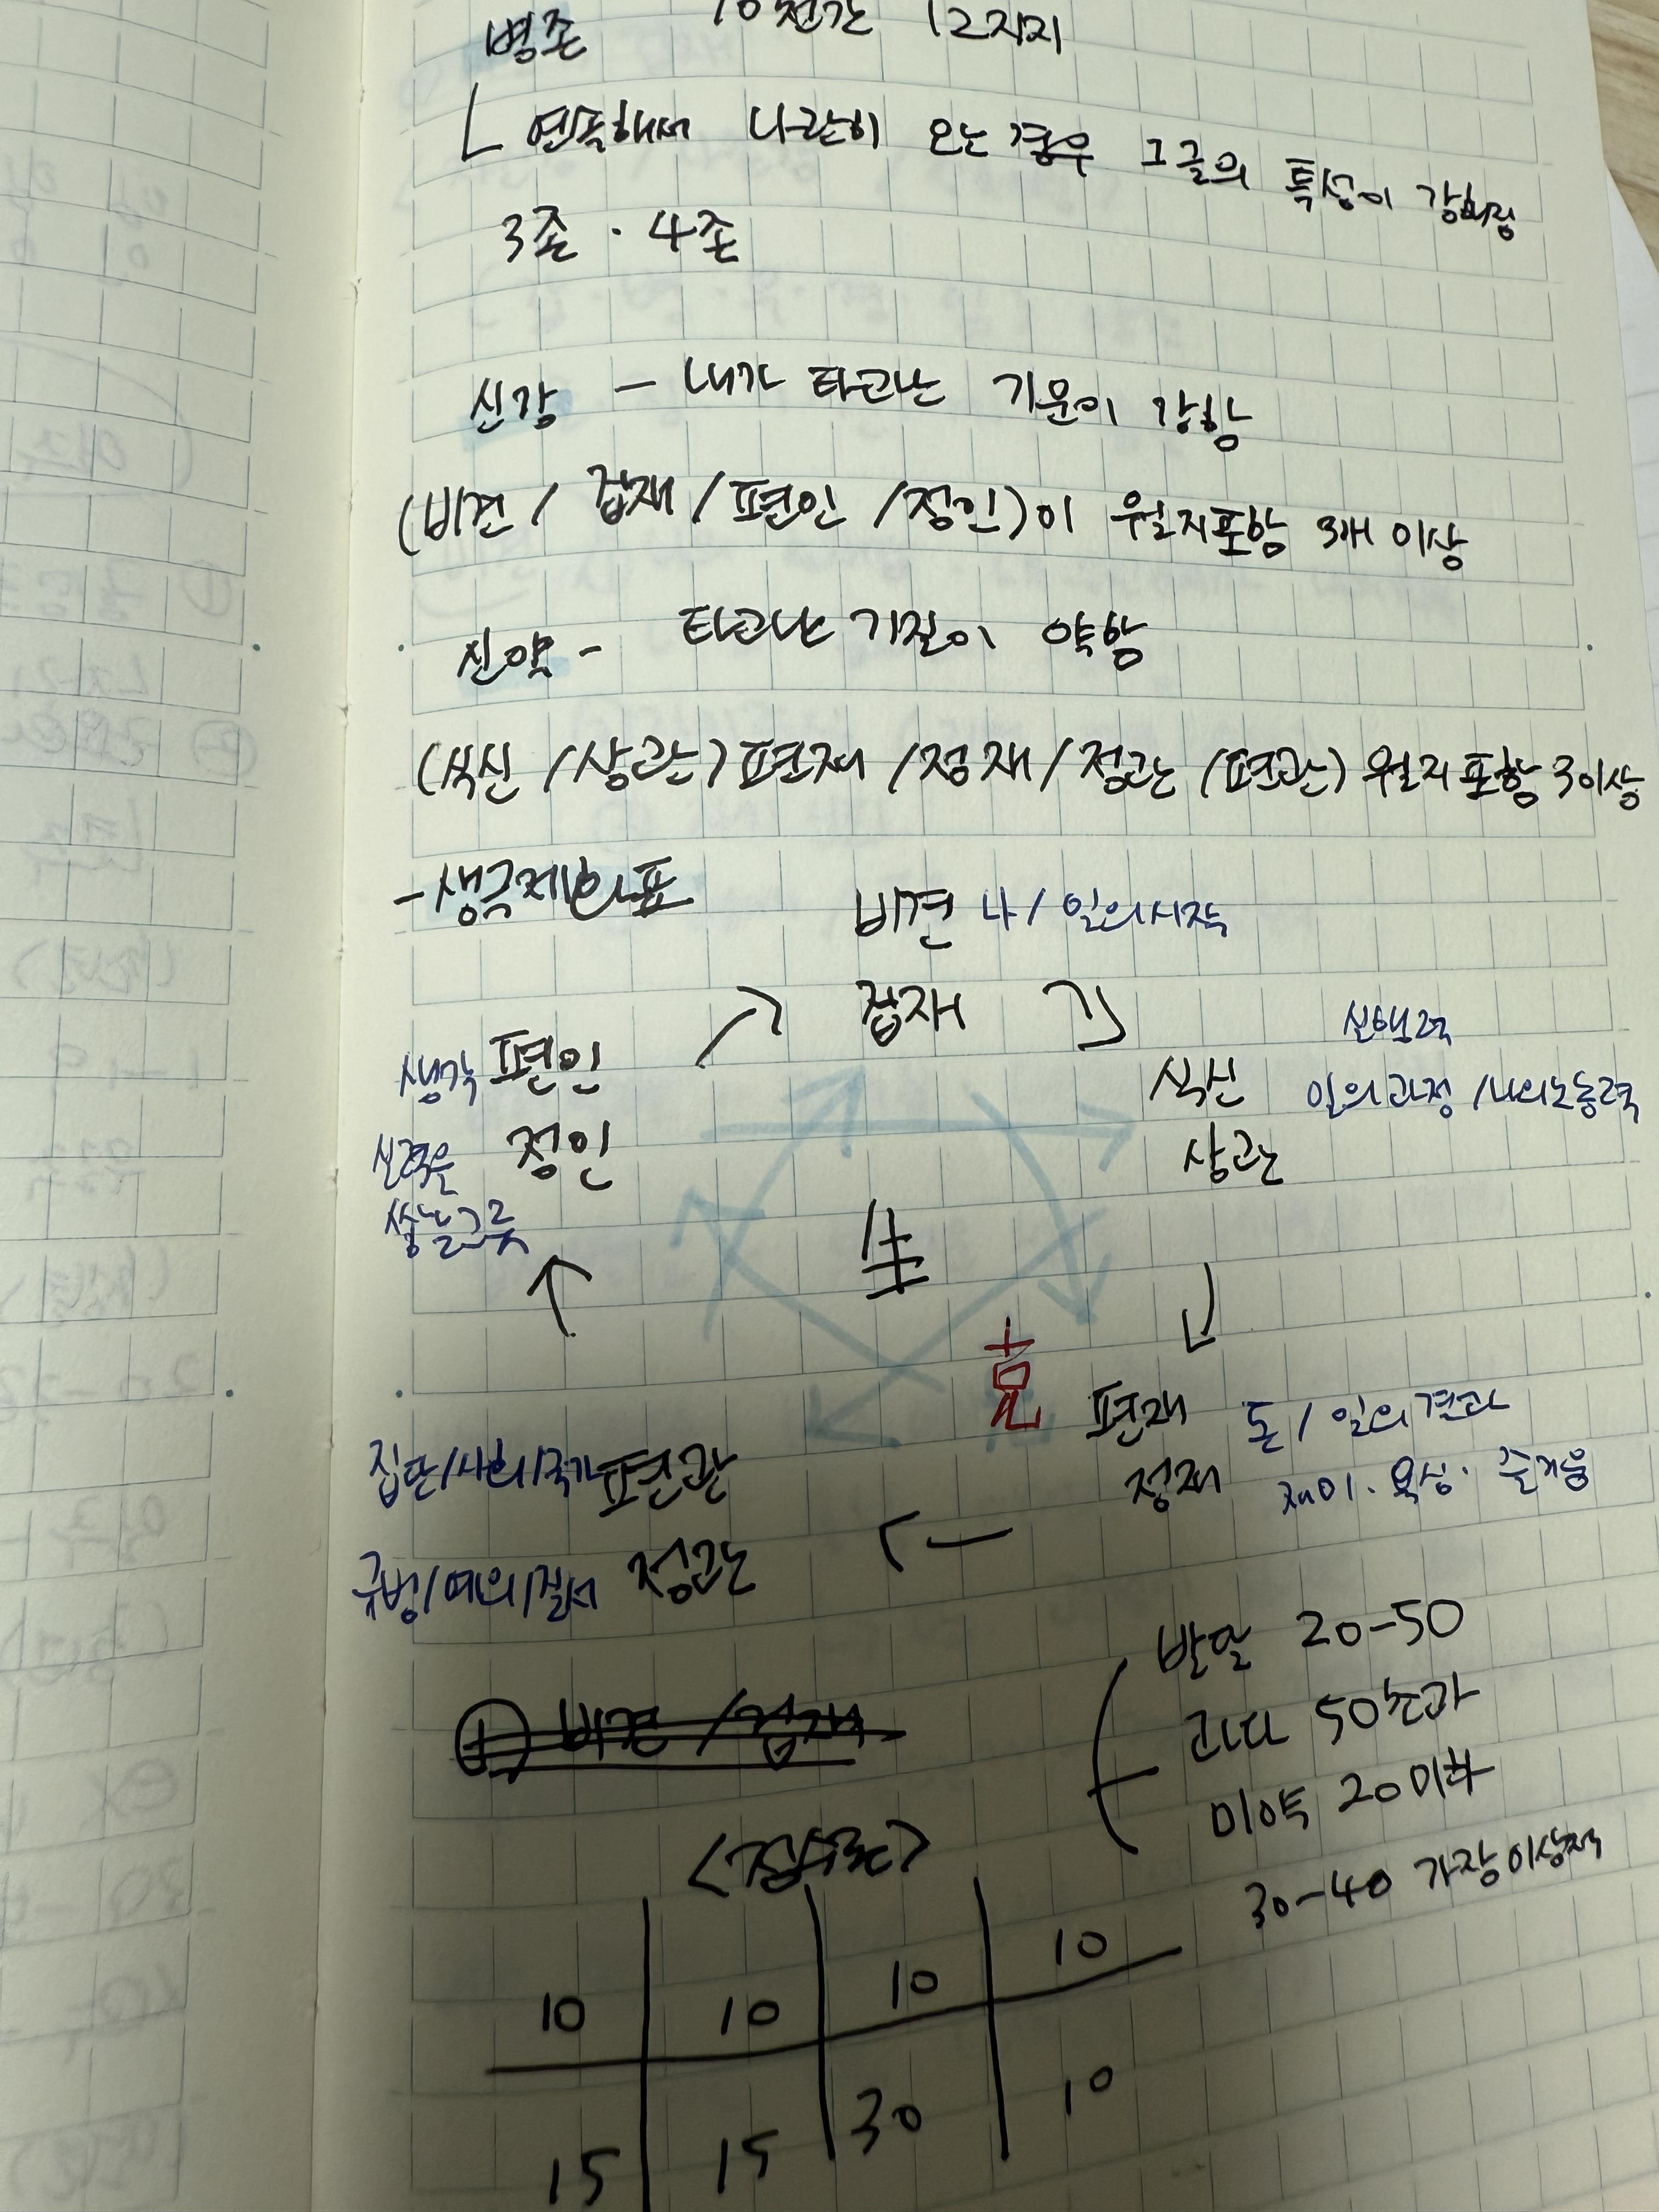 병존 10천간 12지지
ㄴ 연속해서 나란히 오는 경우 그 글의 특성이 강해짐
3존 · 4존
신강 - 내가 타고난 기운이 강함
(비견 / 겁재 / 편인 / 정인)이 월지포함 3개 이상
신약 - 타고난 기질이 약함
(식신 / 상관) 편재 / 정재 / 정관 / 편관) 월지포함 3이상
- 생극제화표
비견 나 / 일의시작
겁재
생각 편인
정인
식신
상관
실행력
일의과정 / 나의노동력
生
克
편재 돈 / 일의결과
정재 재미 · 욕심 · 즐거움
집단/사회/국가 편관
규범/예의/질서 정관
① 비견 / 겁재
발달 20-50
과다 50초과
미약 20미하
30-40 가장이상적
<점수표>
10 10 10 10
15 15 30 10